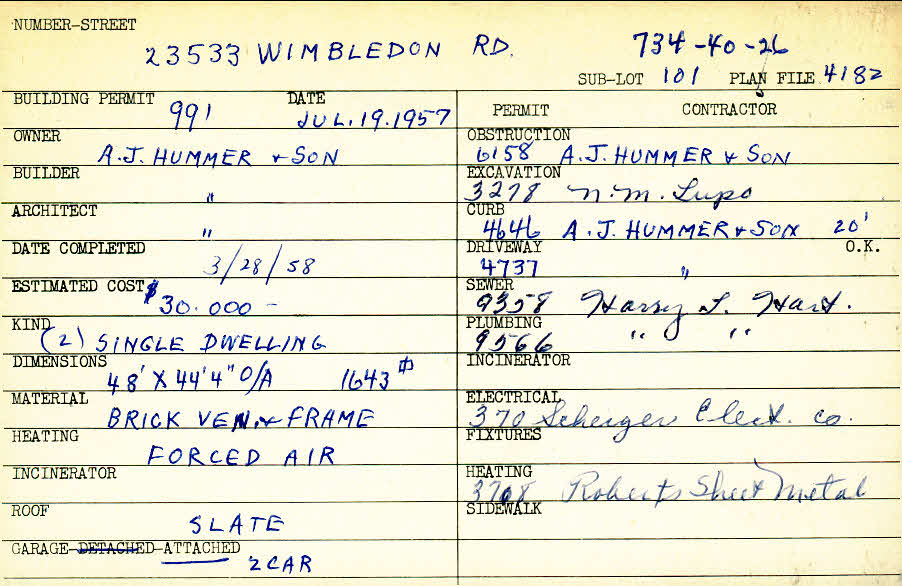 NUMBER-STREET
23533 WIMBLEDON RD. 734-40-26
SUB-LOT 101 PLAN FILE 4182
BUILDING PERMIT 991 DATE JUL.19.1957
OWNER A.J. HUMMER & SON
BUILDER "
ARCHITECT "
DATE COMPLETED 3/28/58
ESTIMATED COST $30.000-
KIND (2) SINGLE DWELLING
DIMENSIONS 48' X 44'4" O/A 1643
MATERIAL BRICK VEN. & FRAME
HEATING FORCED AIR
INCINERATOR
ROOF SLATE
GARAGE-DETACHED-ATTACHED 2 CAR
PERMIT CONTRACTOR
OBSTRUCTION 6158 A.J. HUMMER & SON
EXCAVATION 3278 N.M. Lupo
CURB 4646 A.J. HUMMER & SON 20'
DRIVEWAY 4737 " O.K.
SEWER 9358 Harry L. Hart.
PLUMBING 9566 " "
INCINERATOR
ELECTRICAL 370 Elect. Co.
FIXTURES
HEATING 3708 Roberts Sheet Metal
SIDEWALK